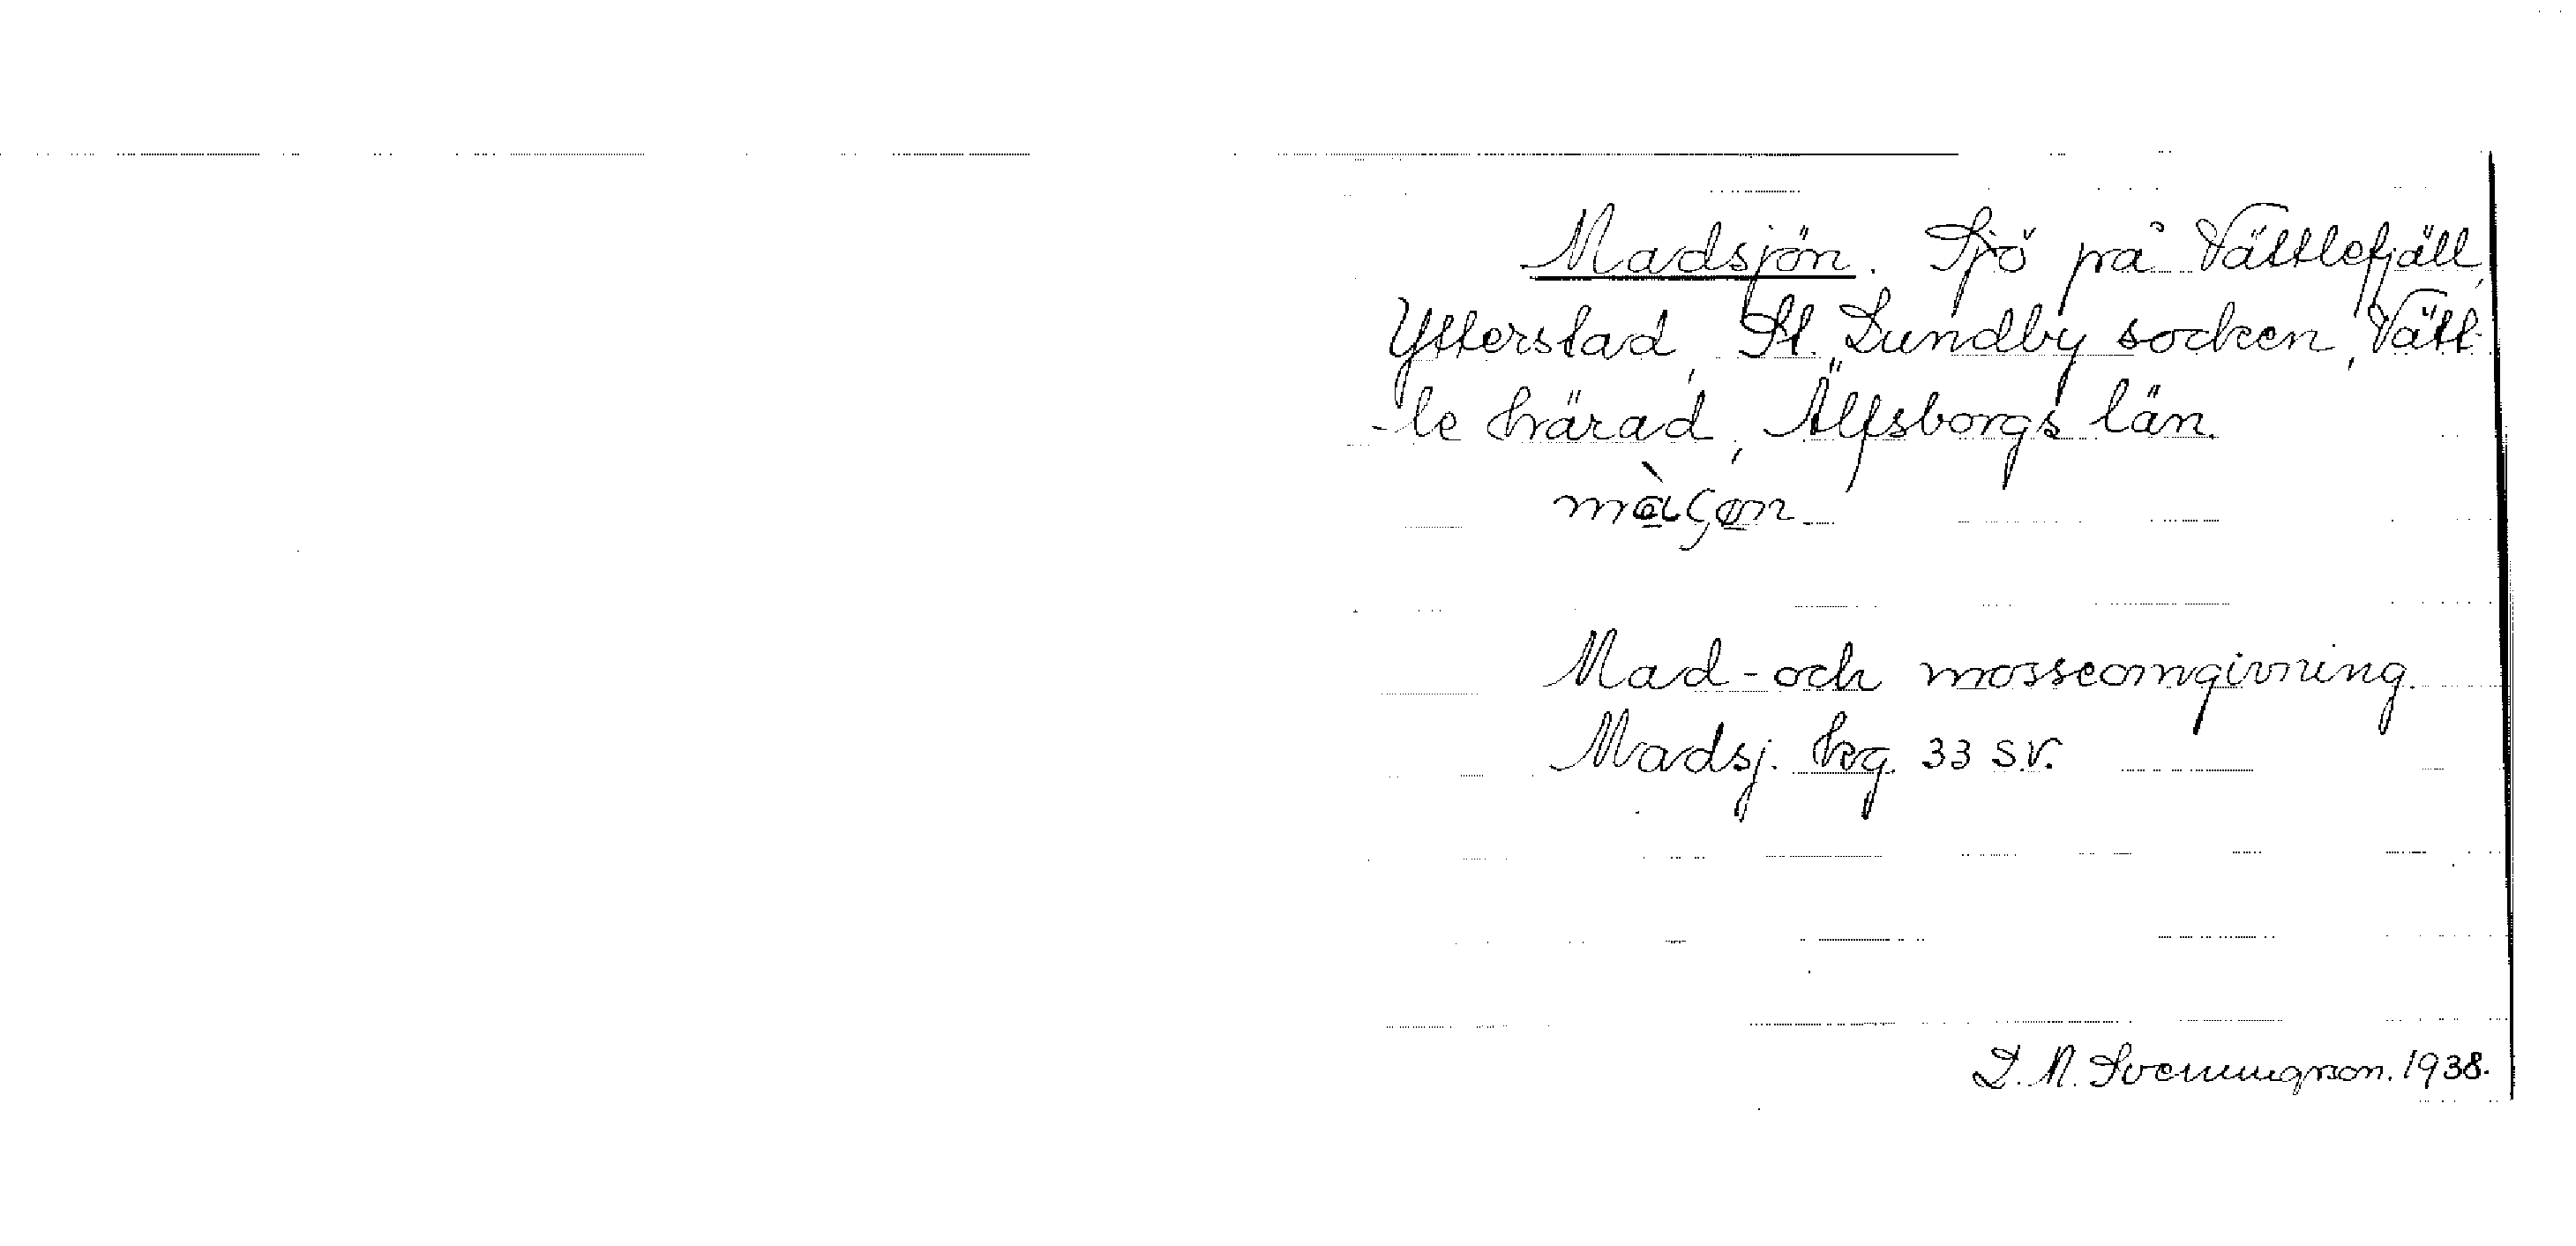 Madsjön. Sjö på Vättlefjäll,
Ytterstad, St. Lundby socken, Vätt-
-le härad, Älfsborgs län.
Mad- och mosseomgivning.
Madsj. hg. 33 S.V.
1938.